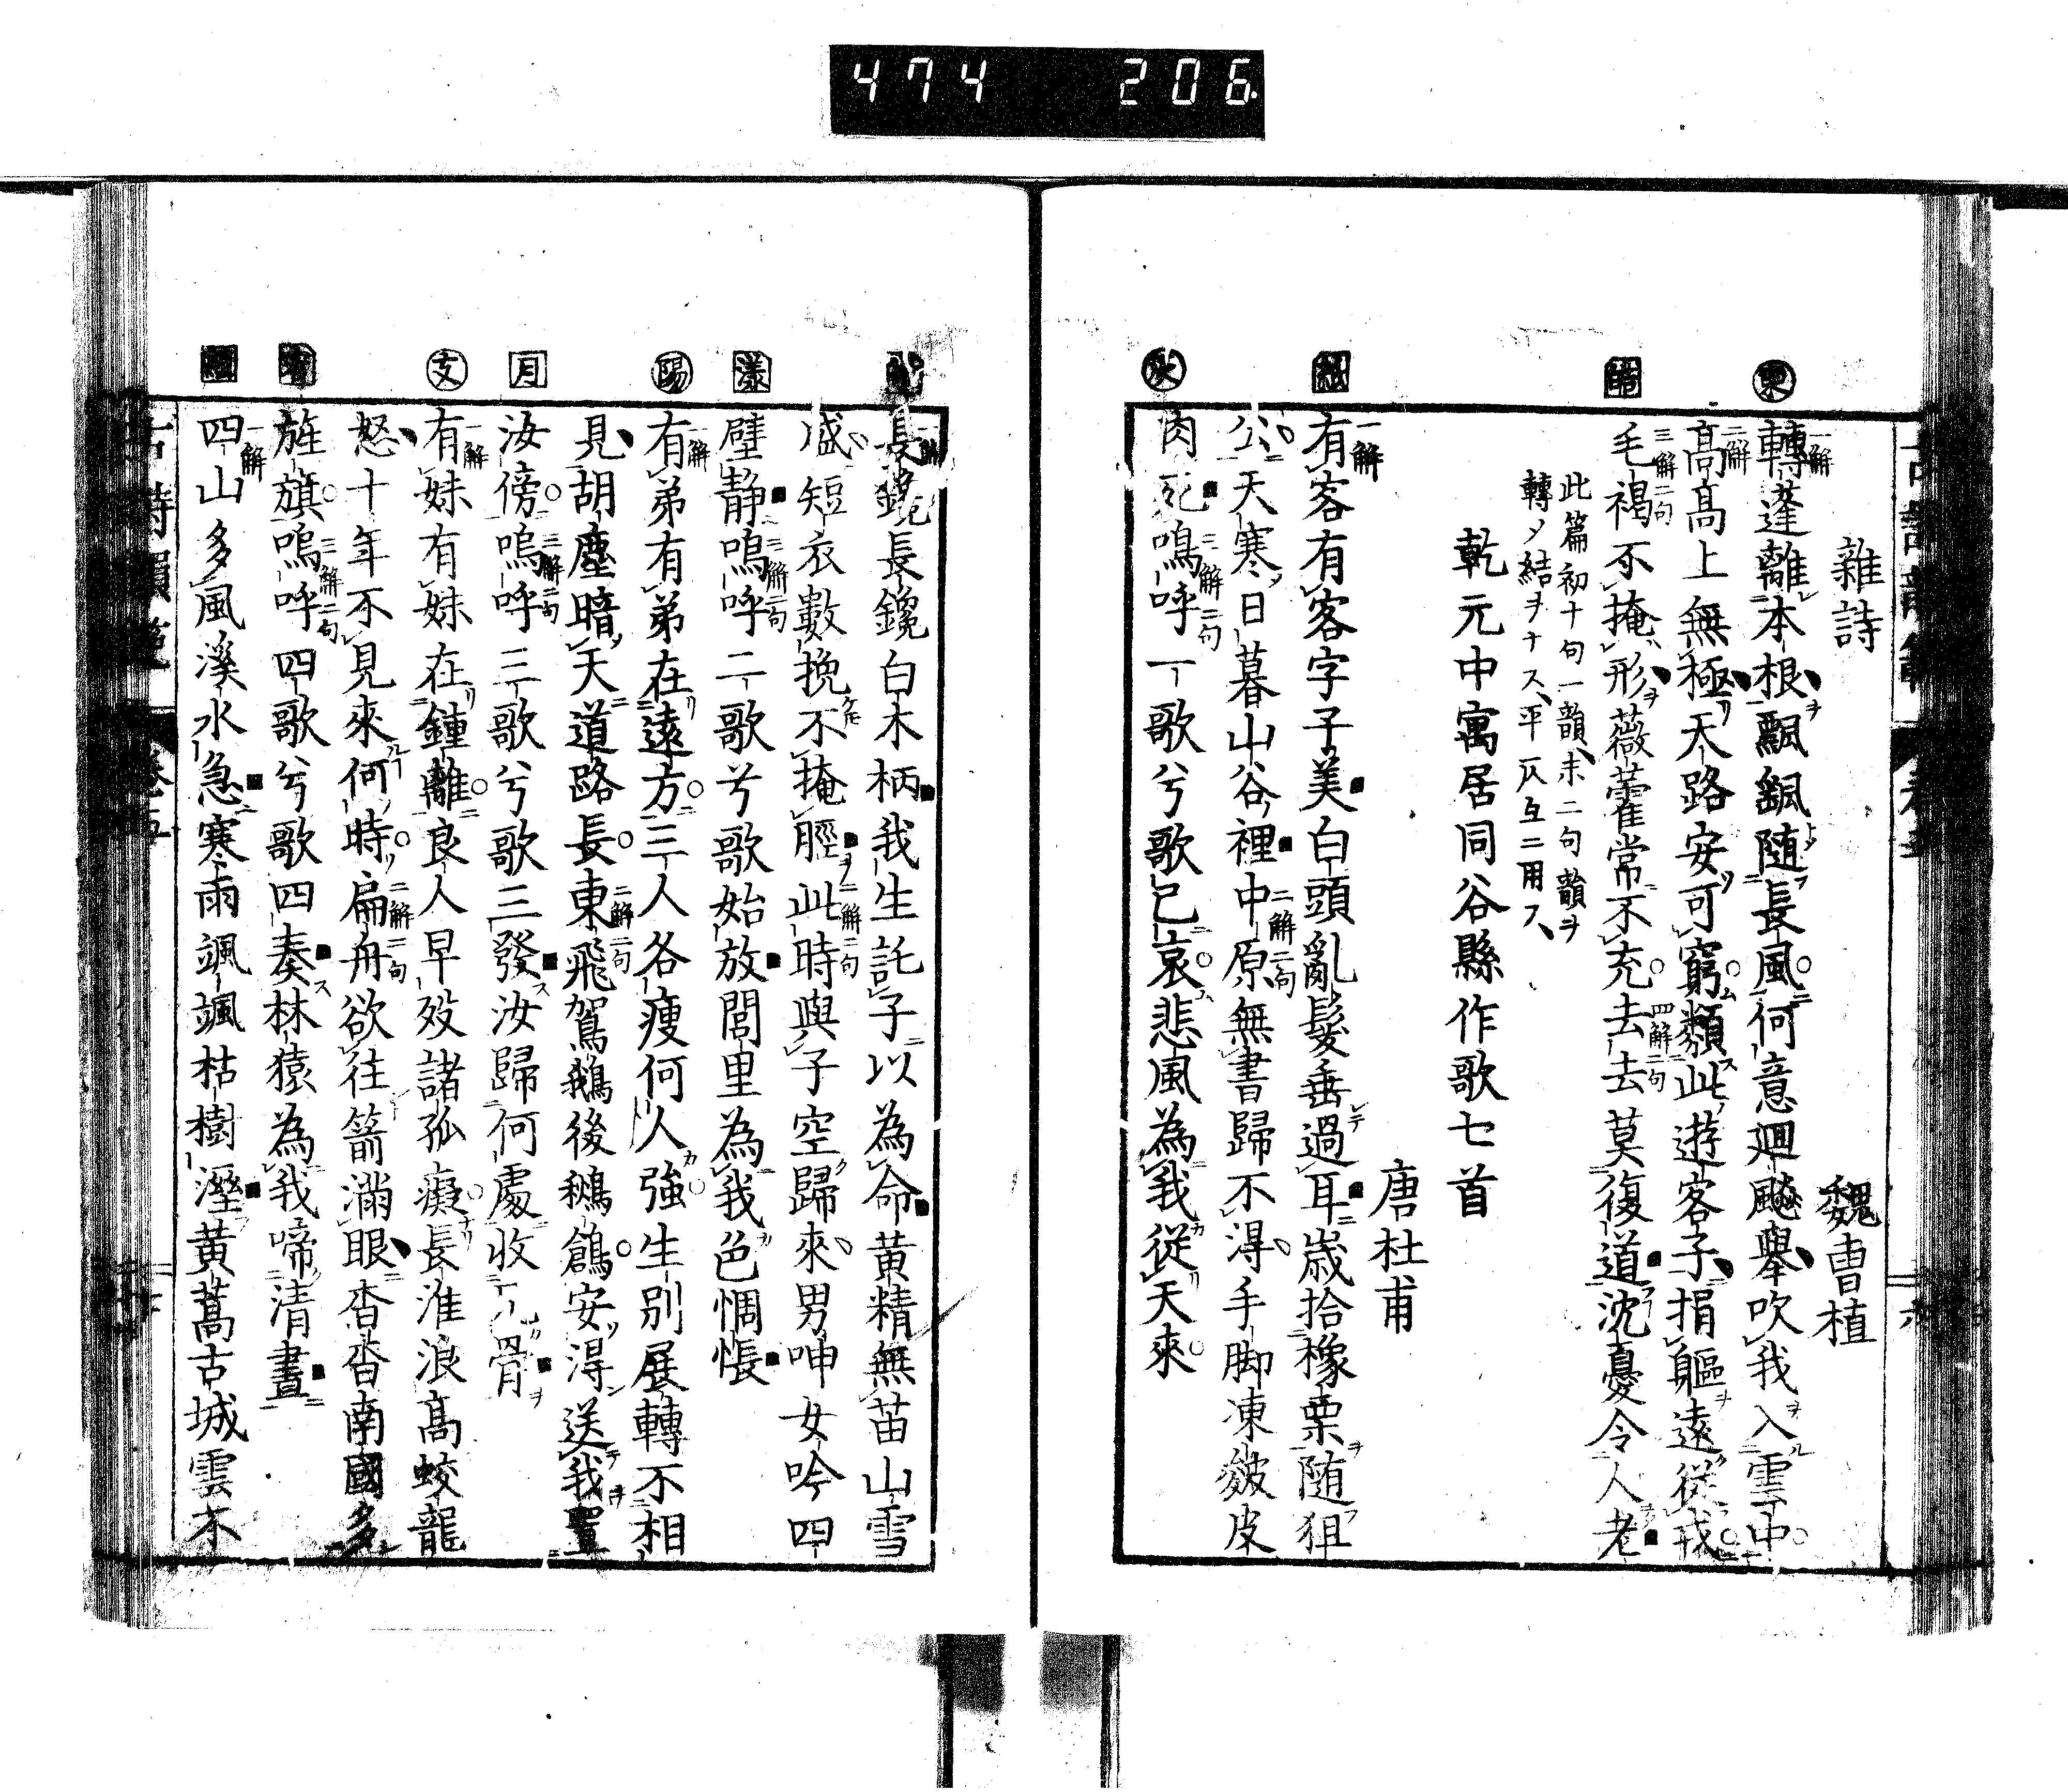 474 206
雜詩
魏曹植
東
轉蓬離本根飄颻随長風何意廻飈舉吹我入雲中
高高上無極天路安可窮類此遊客子捐軀遠從戎
皓
毛褐不掩形薇藿常不充去去莫復道沈憂令人老
此篇初十句一韻末二句韻ヲ
轉メ結ヲナス平仄互ニ用ス
乾元中寓居同谷縣作歌七首
唐杜甫
紙
有客有客字子美白頭亂髮垂過耳歲拾橡栗随狙
公天寒日暮山谷裡中原無書歸不得手脚凍皴皮
灰
肉死嗚呼一歌兮歌已哀悲風為我從天來
長鑱長鑱白木柄我生託子以為命黄精無苗山雪
盛短衣數挽不掩脛此時與子空歸來男呻女吟四
漾
壁静嗚呼二歌兮歌始放閭里為我色惆悵
陽
有弟有弟在遠方三人各痩何人強生別展轉不相
見胡塵暗天道路長東飛駕鵝後鶖鶬安得送我置
月
汝傍嗚呼三歌兮歌三發汝歸何處收骨
支
有妹有妹在鍾離良人早歿諸孤癡長淮浪高蛟龍
怒十年不見來何時扁舟欲往箭滿眼杳杳南國多
旌旗嗚呼四歌兮歌四奏林猿為我啼清晝
四山多風溪水急寒雨颯颯枯樹溼黄蒿古城雲不